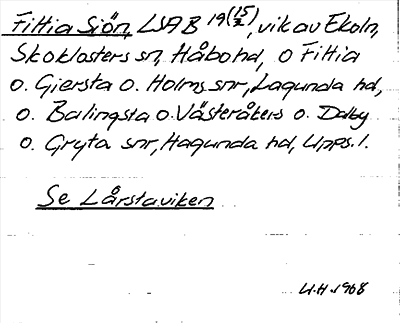 Fittia Sjön, LSAB 19(15/2), vik av Ekoln,
Skoklosters sn, Håbo hd, o Fittia
o. Giersta o. Holms snr, Lagunda hd,
o. Balingsta o. Västeråkers o. Dalby
o. Gryta snr, Hagunda hd, Upps. l.
Se Lårstaviken
U.H. 1968